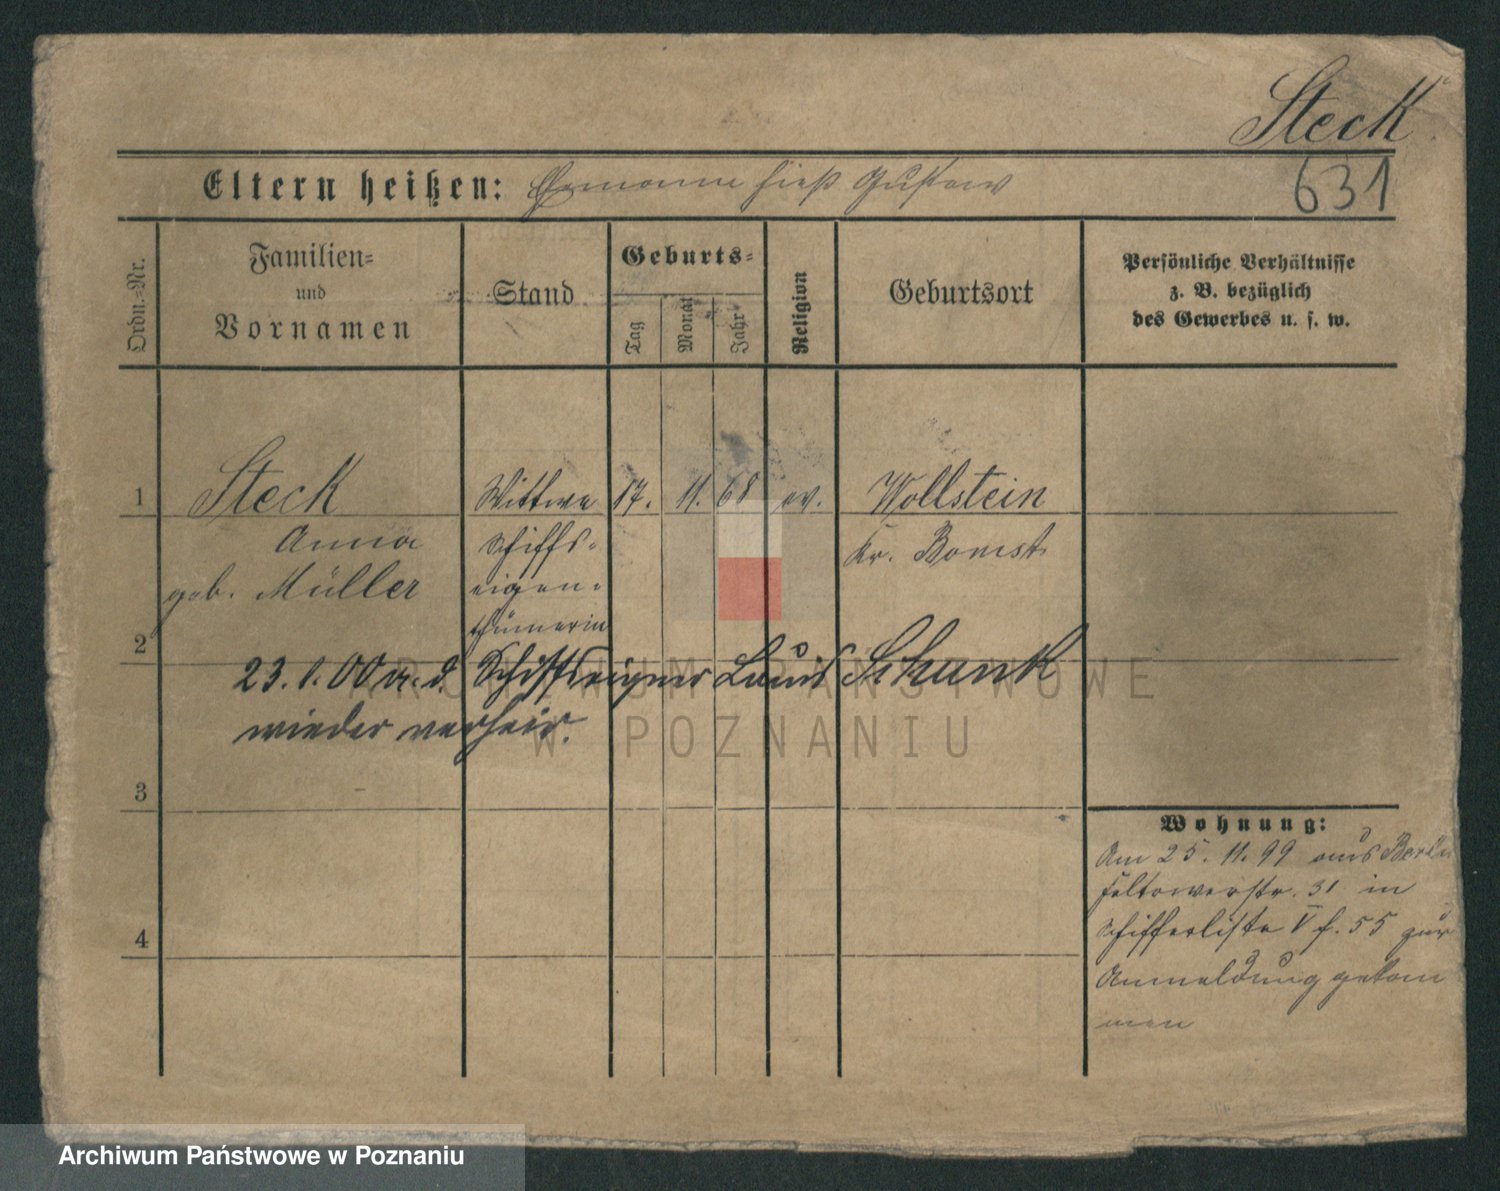 Steck
631
Eltern heißen: Ehemann hieß Gustav
Ordn.-Nr.
Familien-
und
Vornamen
Stand
Geburts-
Tag
Monat
Jahr
Religion
Geburtsort
Persönliche Verhältnisse
z. B. bezüglich
des Gewerbes u. s. w.
1 Steck Wittwe 17. 11. 68 ev. Wollstein
Anna Schiffs- Kr. Bomst
geb. Müller eigen-
2 thümerin
23.1.00 m. d. Schiffseigner Louis Schunk
wieder verheir.
3
4
Wohnung:
Am 25. 11. 99 aus Berlin
Teltowerstr. 31 in
Schifferliste V f. 55 zur
Anmeldung gekom
men
ARCHIWUM PAŃSTWOWE
W POZNANIU
Archiwum Państwowe w Poznaniu